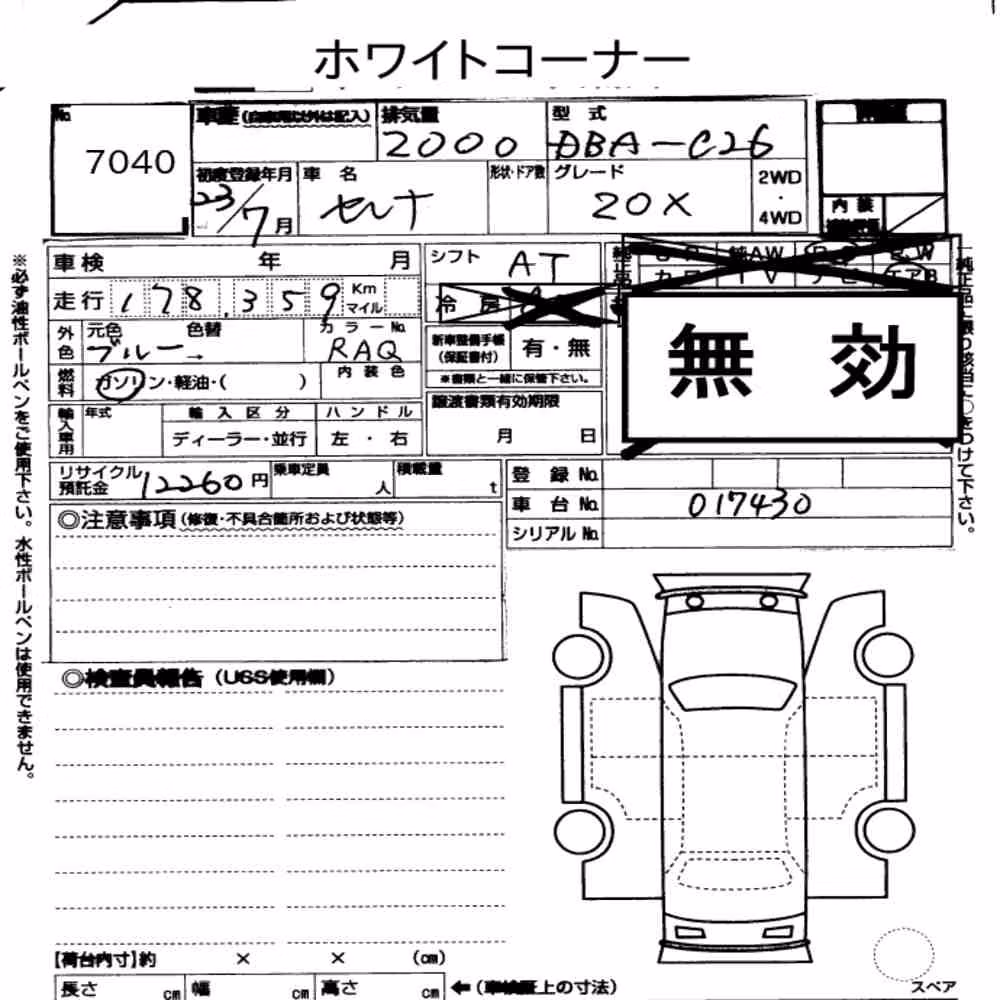 ホワイトコーナー
No.
7040
車歴(自家用以外は記入)
排気量
2000
型式
DBA-C26
初度登録年月
23/7月
車名
セレナ
形状・ドア数
グレード
20X
2WD
・
4WD
内装
車検 年 月
走行 178,359 Km マイル
シフト AT
冷房
外色 元色 ブルー 色替 →
カラーNo.
RAQ
燃料 ガソリン・軽油・( )
内装色
新車整備手帳(保証書付) 有・無
※書類と一緒に保管下さい。
輸入車用 年式
輸入区分
ディーラー・並行
ハンドル
左・右
譲渡書類有効期限
月 日
無効
リサイクル預託金 12260円
乗車定員 人
積載量 t
登録No.
車台No. 017430
シリアルNo.
◎注意事項(修復・不具合箇所および状態等)
◎検査員報告(USS使用欄)
【荷台内寸】約 × × (cm)
長さ cm 幅 cm 高さ cm ←(車検証上の寸法)
スペア
※必ず油性ボールペンをご使用下さい。水性ボールペンは使用できません。
純正品に限り該当に○をつけて下さい。